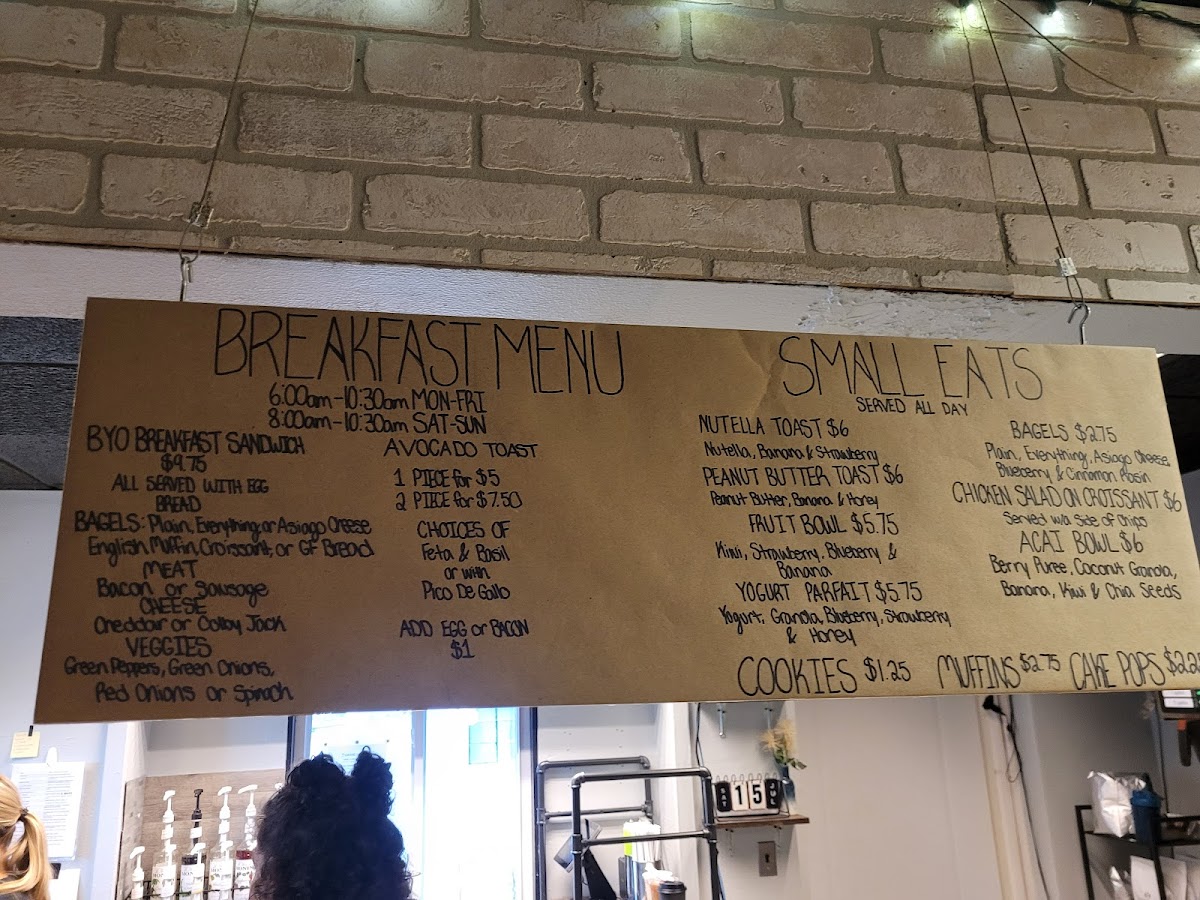 BREAKFAST MENU
6:00am-10:30am MON-FRI
8:00am-10:30am SAT-SUN
BYO BREAKFAST SANDWICH
$9.75
ALL SERVED WITH EGG
BREAD
BAGELS: Plain, Everything, or Asiago Cheese
English Muffin, Croissant, or GF Bread
MEAT
Bacon or Sausage
CHEESE
Cheddar or Colby Jack
VEGGIES
Green Peppers, Green Onions,
Red Onions or Spinach
AVOCADO TOAST
1 PIECE for $5
2 PIECE for $7.50
CHOICES OF
Feta & Basil
or with
Pico De Gallo
ADD EGG or BACON
$1
SMALL EATS
SERVED ALL DAY
NUTELLA TOAST $6
Nutella, Banana & Strawberry
PEANUT BUTTER TOAST $6
Peanut Butter, Banana & Honey
FRUIT BOWL $5.75
Kiwi, Strawberry, Blueberry &
Banana
YOGURT PARFAIT $5.75
Yogurt, Granola, Blueberry, Strawberry
& Honey
BAGELS $2.75
Plain, Everything, Asiago Cheese
Blueberry & Cinnamon Raisin
CHICKEN SALAD ON CROISSANT $6
Served w/a Side of Chips
ACAI BOWL $6
Berry Puree, Coconut Granola,
Banana, Kiwi & Chia Seeds
COOKIES $1.25 MUFFINS $2.75 CAKE POPS $2.25
SAT 15 JUL